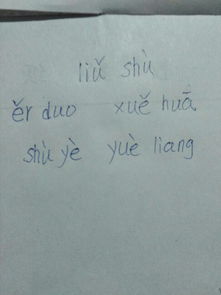 liǔ shù
ěr duo xuě huā
shù yè yuè liang